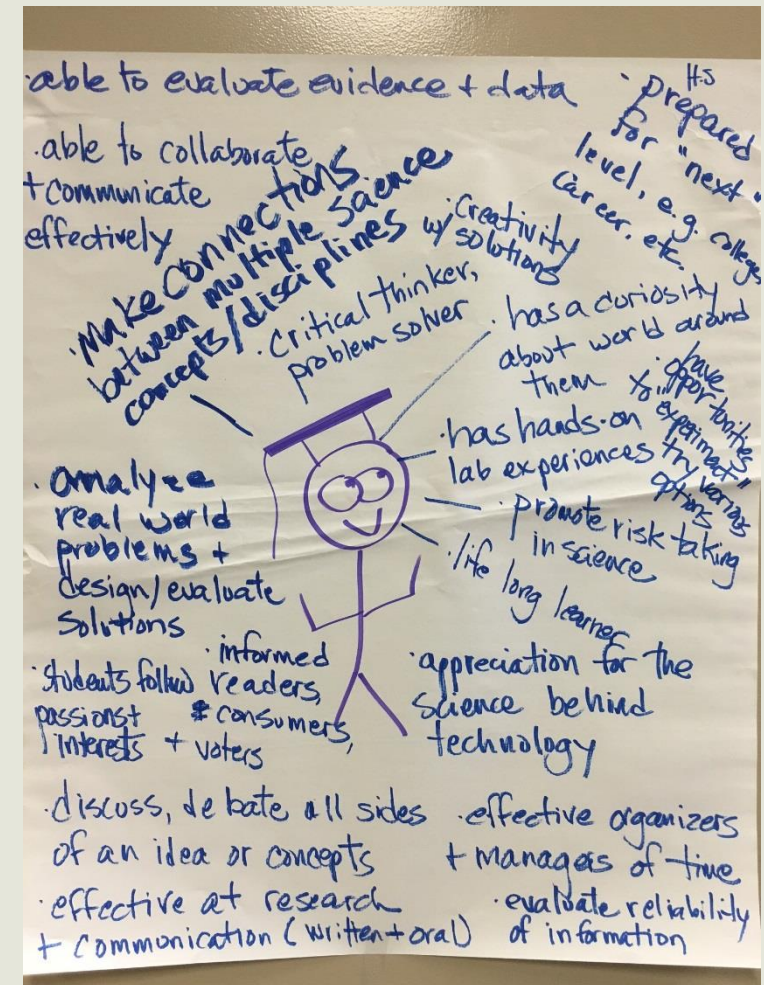 ·able to evaluate evidence + data
·able to collaborate
+ communicate
effectively
· H.S
prepared
for "next"
level, e.g. college,
career. etc.
·Make connections
between multiple science
concepts/disciplines
·Creativity
w/ solutions
·Critical thinker,
problem solver
·has a curiosity
about world around
them
·have
opportunities
to "experiment"
try various
options
·has hands-on
lab experiences
·promote risk taking
in science
·life long learner
·analyze
real world
problems +
design/evaluate
solutions
·informed
readers,
consumers,
+ voters
·students follow
passions +
interests
·appreciation for the
science behind
technology
·discuss, debate all sides
of an idea or concepts
·effective organizers
+ managers of time
·effective at research
+ communication (written + oral)
·evaluate reliability
of information